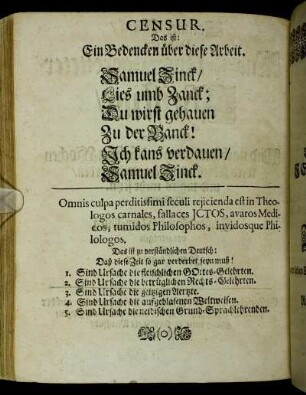 CENSUR.
Das ist:
Ein Bedencken über diese Arbeit.
Samuel Zinck/
Lies umb Zanck;
Du wirst gehauen
Zu der Banck!
Ich kans verdauen/
Samuel Zinck.
Omnis culpa perditissimi seculi rejicienda est in Theo-
logos carnales, fallaces JCTOS, avaros Medi-
cos, tumidos Philosophos, invidosque Phi-
lologos.
Das ist zu verständlichen Deutsch:
Daß diese Zeit so gar verderbet seyn muß!
1. Sind Ursache die fleischlichen GOttes-Gelehrten.
2. Sind Ursache die betrüglichen Rechts-Gelehrten.
3. Sind Ursache die geitzigen Aertzte.
4. Sind Ursache die aufgeblasenen Weltweisen.
5. Sind Ursache die neidischen Grund-Sprachlehrenden.